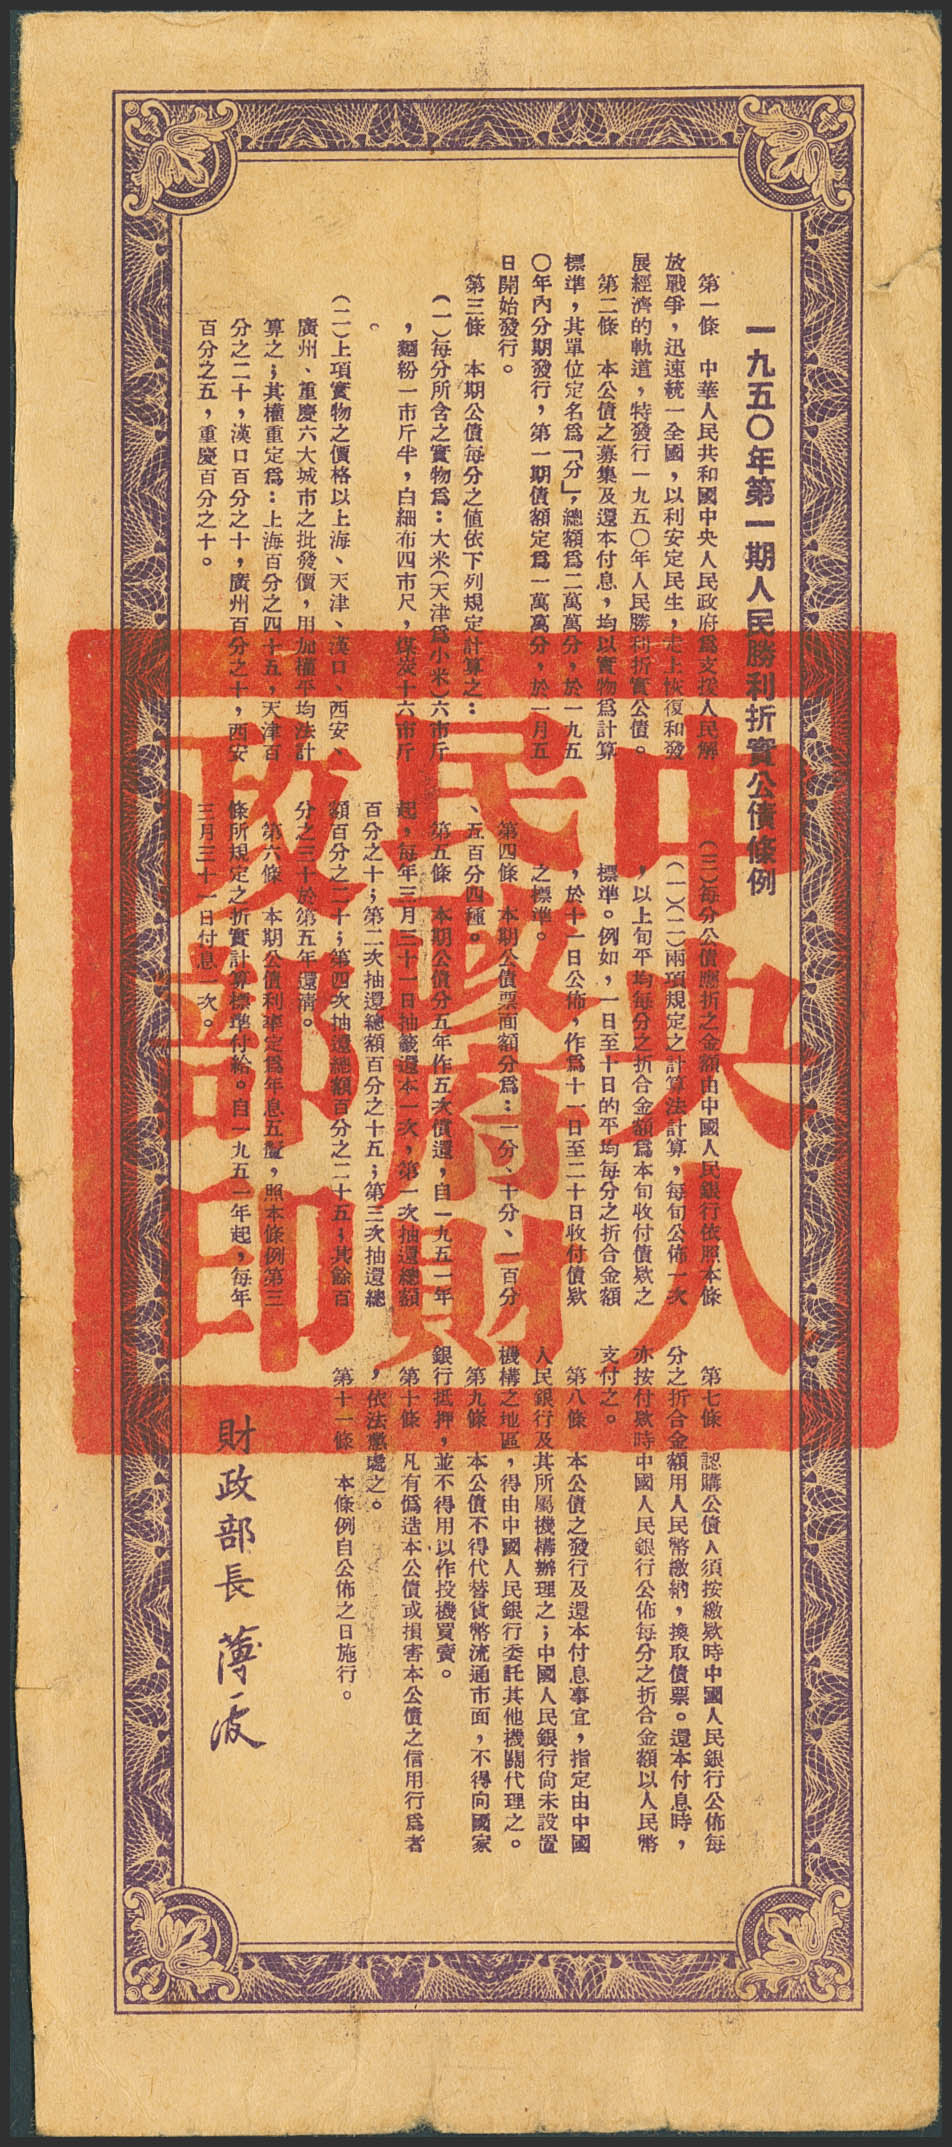 一九五〇年第一期人民勝利折實公債條例
第一條　中華人民共和國中央人民政府爲支援人民解
放戰爭，迅速統一全國，以利安定民生，走上恢復和發
展經濟的軌道，特發行一九五〇年人民勝利折實公債。
第二條　本公債之募集及還本付息，均以實物爲計算
標準，其單位定名爲「分」，總額爲二萬萬分，於一九五
〇年內分期發行，第一期債額定爲一萬萬分，於一月五
日開始發行。
第三條　本期公債每分之值依下列規定計算之：
（一）每分所含之實物爲：大米（天津爲小米）六市斤
，麵粉一市斤半，白細布四市尺，煤炭十六市斤
。
（二）上項實物之價格以上海、天津、漢口、西安、
廣州、重慶六大城市之批發價，用加權平均法計
算之；其權重定爲：上海百分之四十五，天津百
分之二十，漢口百分之十，廣州百分之十，西安
百分之五，重慶百分之十。
（三）每分公債應折之金額由中國人民銀行依照本條
（一）（二）兩項規定之計算法計算，每旬公佈一次
，以上旬平均每分之折合金額爲本旬收付債款之
標準。例如，一日至十日的平均每分之折合金額
，於十一日公佈，作爲十一日至二十日收付債款
之標準。
第四條　本期公債票面額分爲：一分、十分、一百分
、五百分四種。
第五條　本期公債分五年作五次償還，自一九五一年
起，每年三月三十一日抽籤還本一次，第一次抽還總額
百分之十；第二次抽還總額百分之十五；第三次抽還總
額百分之二十；第四次抽還總額百分之二十五；其餘百
分之三十於第五年還清。
第六條　本期公債利率定爲年息五釐，照本條例第三
條所規定之折實計算標準付給。自一九五一年起，每年
三月三十一日付息一次。
第七條　認購公債人須按繳款時中國人民銀行公佈每
分之折合金額用人民幣繳納，換取債票。還本付息時，
亦按付款時中國人民銀行公佈每分之折合金額以人民幣
支付之。
第八條　本公債之發行及還本付息事宜，指定由中國
人民銀行及其所屬機構辦理之；中國人民銀行尙未設置
機構之地區，得由中國人民銀行委託其他機關代理之。
第九條　本公債不得代替貨幣流通市面，不得向國家
銀行抵押，並不得用以作投機買賣。
第十條　凡有僞造本公債或損害本公債之信用行爲者
，依法懲處之。
第十一條　本條例自公佈之日施行。
財政部長　薄一波
中央人
民政府財
政部印